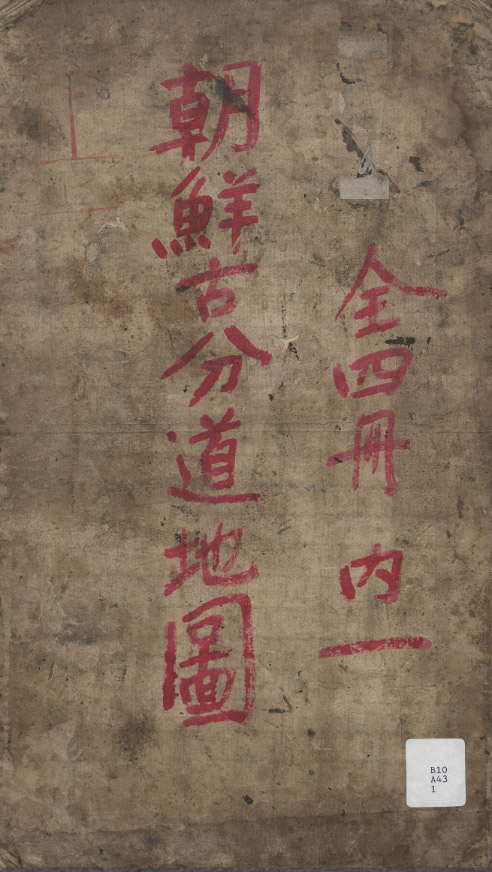 全四冊 内一
朝鮮古分道地圖
上
B10
A43
1